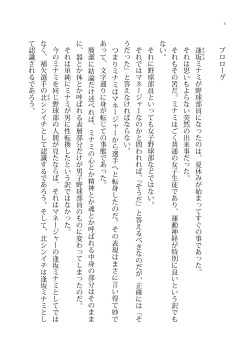 プロローグ
逢坂ミナミが野球部員になったのは、夏休みが始まってすぐの事であった。
それは思いもよらない突然の出来事だった。
それもその筈だ。ミナミはごく普通の女子生徒であり、運動神経が特別に良いという訳でも
ない。
それに野球部員といっても女子野球部などではない。
それではマネージャーなのかと問われれば、「そうだ」と答えるべきなのだが、正確には「そ
うだった」と答えなければならない。
つまりミナミはマネージャーから選手へと転身したのだ。その表現はまさに言い得て妙で
あって、文字通りに身が転じての事態であった。
簡潔に結論だけ述べれば、ミナミの心とか精神とか魂とか呼ばれる中身の部分はそのまま
に、器とか体とか呼ばれる表層部分だけが男のものに変わったのだ。
それは単純にミナミが男に性転換したという訳ではなかった。
今のミナミを同じ野球部の人間が見たならば、それはマネージャーの逢坂ミナミとしてでは
なく、補欠選手の北シンイチとして認識するであろう。そして、北シンイチは逢坂ミナミとし
て認識されるであろう。